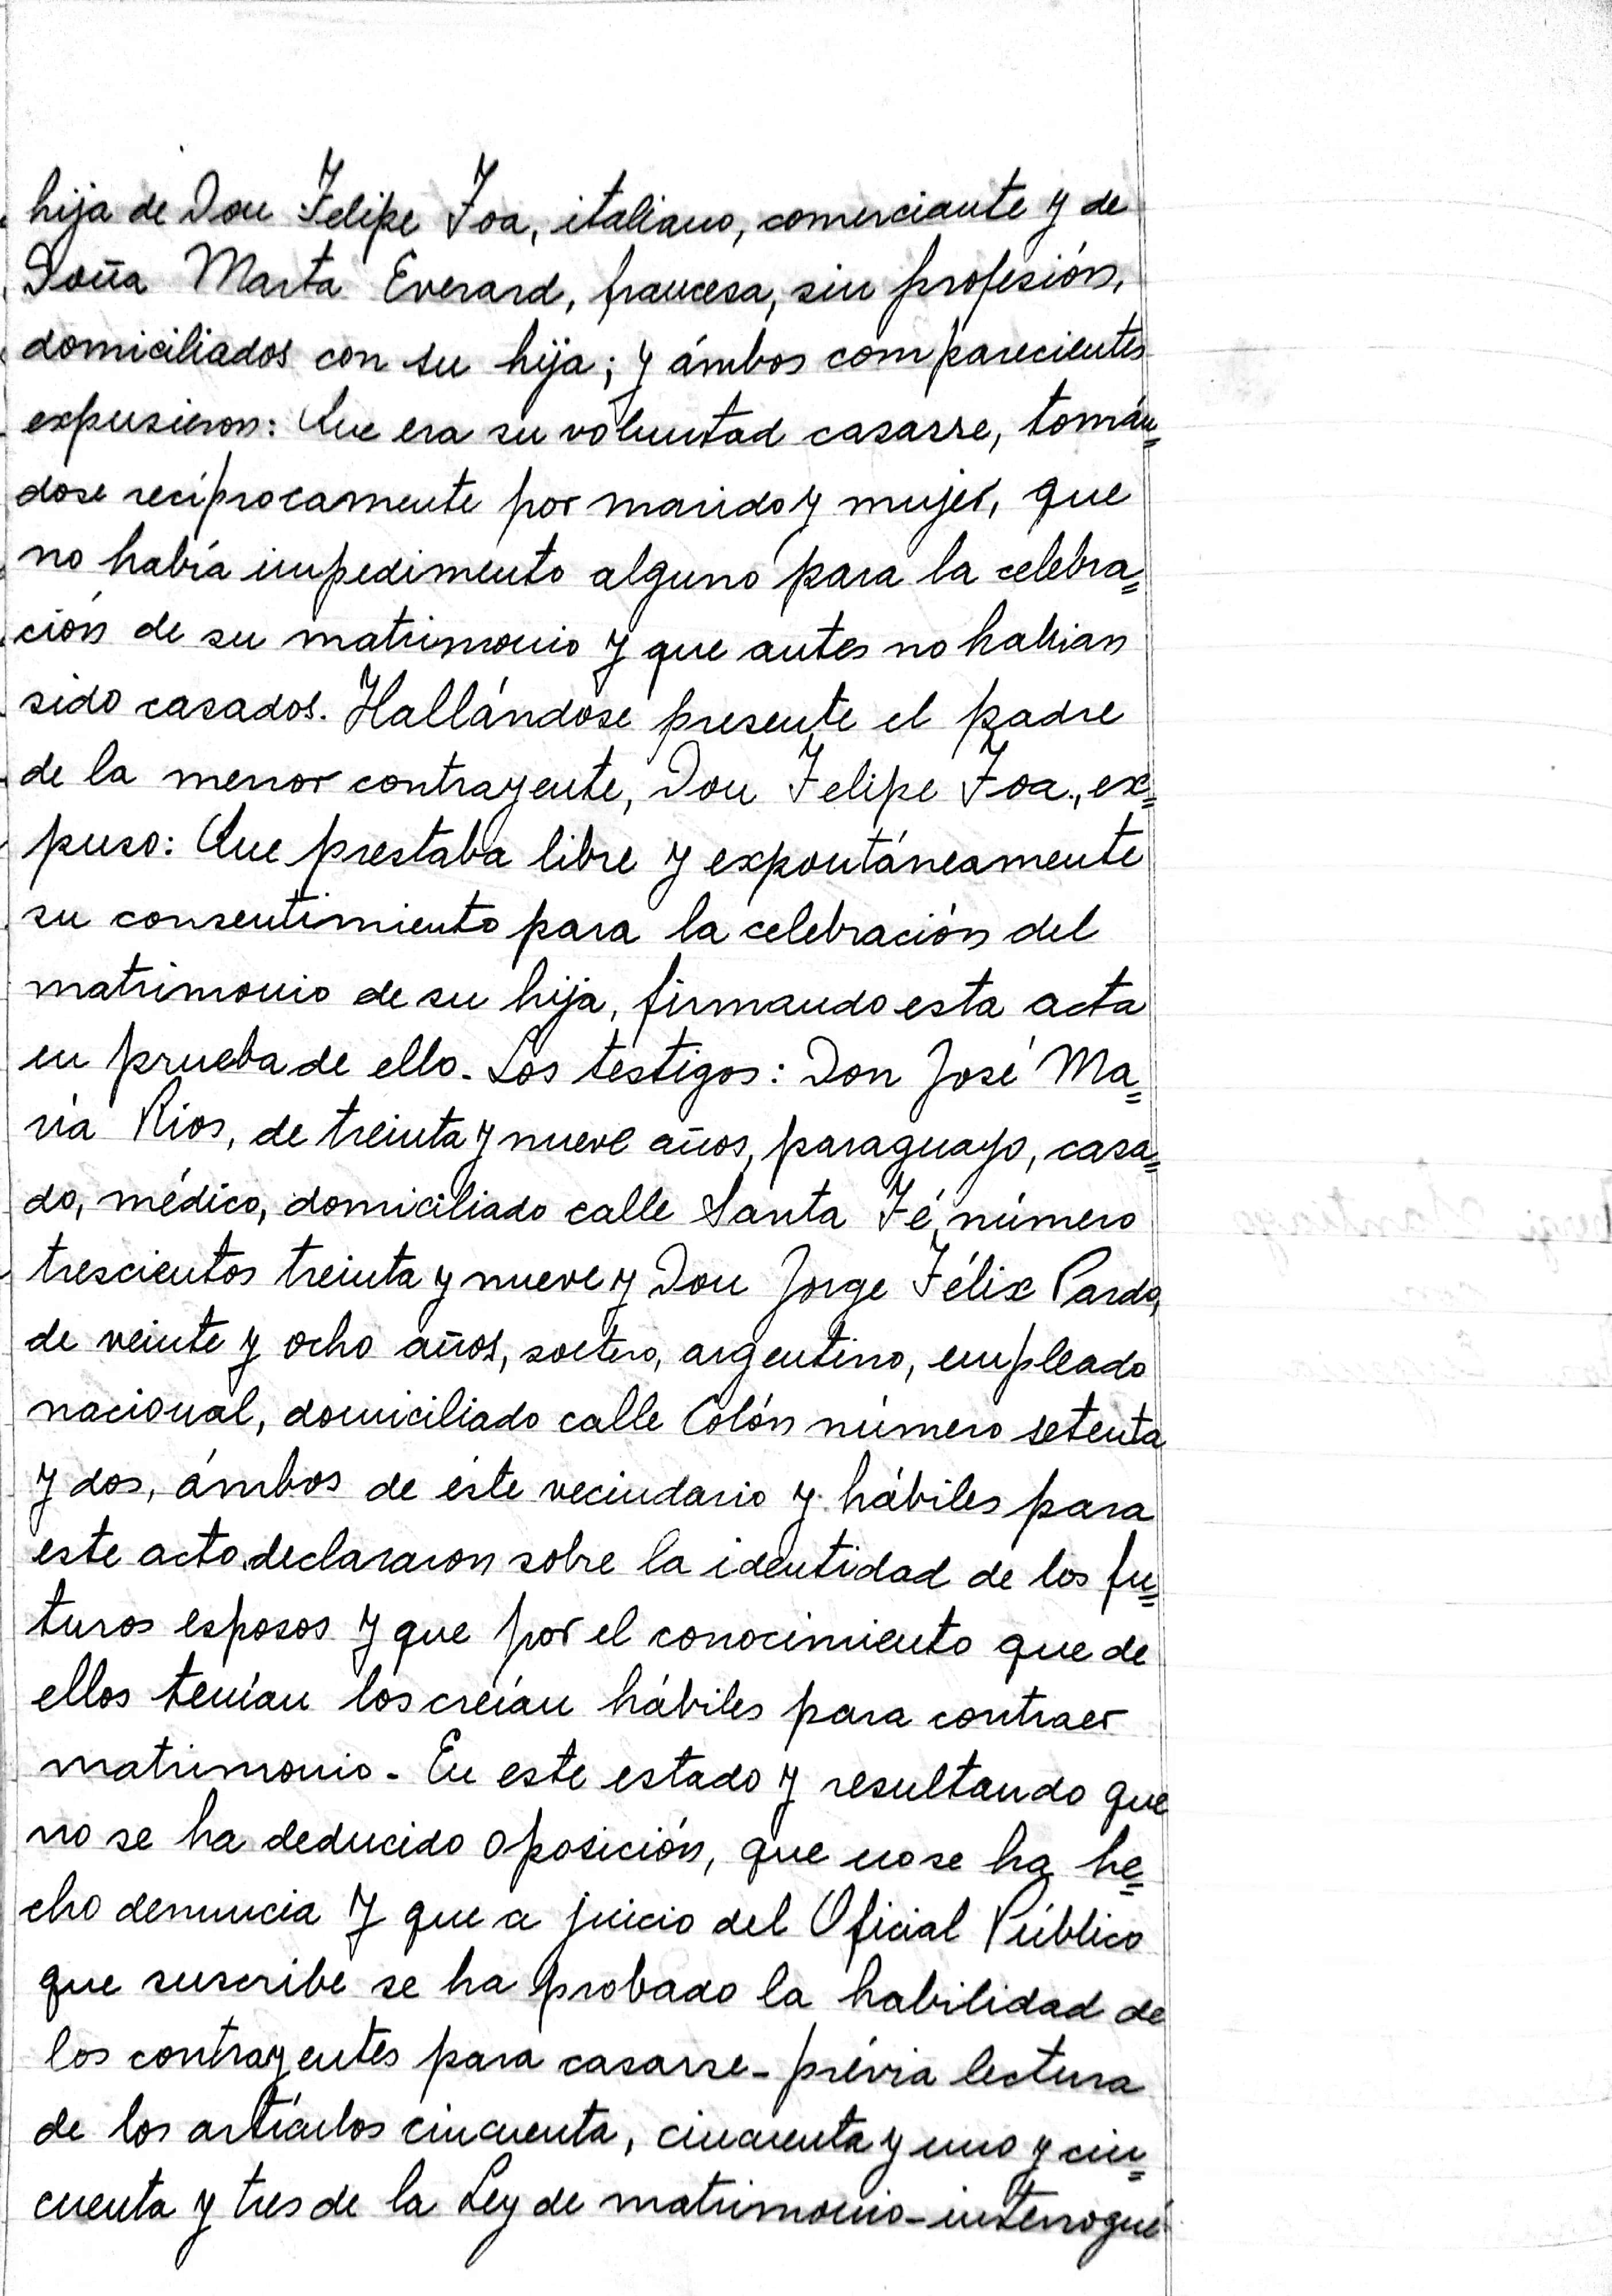 hija de Don Felipe Foa, italiano, comerciante y de
Doña Marta Everard, francesa, sin profesión,
domiciliados con su hija; y ámbos comparecientes
expusieron: Que era su voluntad casarse, tomán=
dose recíprocamente por marido y mujer, que
no había impedimento alguno para la celebra=
ción de su matrimonio y que antes no habian
sido casados. Hallándose presente el padre
de la menor contrayente, Don Felipe Foa., ex=
puso: Que prestaba libre y expontáneamente
su consentimiento para la celebración del
matrimonio de su hija, firmando esta acta
en prueba de ello. Los testigos: Don José Ma=
ría Rios, de treinta y nueve años, paraguayo, casa=
do, médico, domiciliado calle Santa Fé, número
trescientos treinta y nueve y Don Jorge Félix Pardo,
de veinte y ocho años, soltero, argentino, empleado
nacional, domiciliado calle Colón número setenta
y dos, ámbos de éste vecindario y hábiles para
este acto, declararon sobre la identidad de los fu=
turos esposos y que por el conocimiento que de
ellos tenían los creían hábiles para contraer
matrimonio. En este estado y resultando que
no se ha deducido oposición, que no se ha he=
cho denuncia y que a juicio del Oficial Público
que suscribe se ha probado la habilidad de
los contrayentes para casarse - prévia lectura
de los artículos cincuenta, cincuenta y uno y cin=
cuenta y tres de la Ley de matrimonio - interrogué